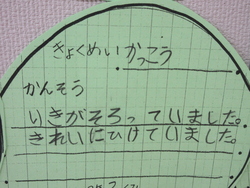 きょくめい かっこう
かんそう
いきがそろっていました。
きれいにひけていました。